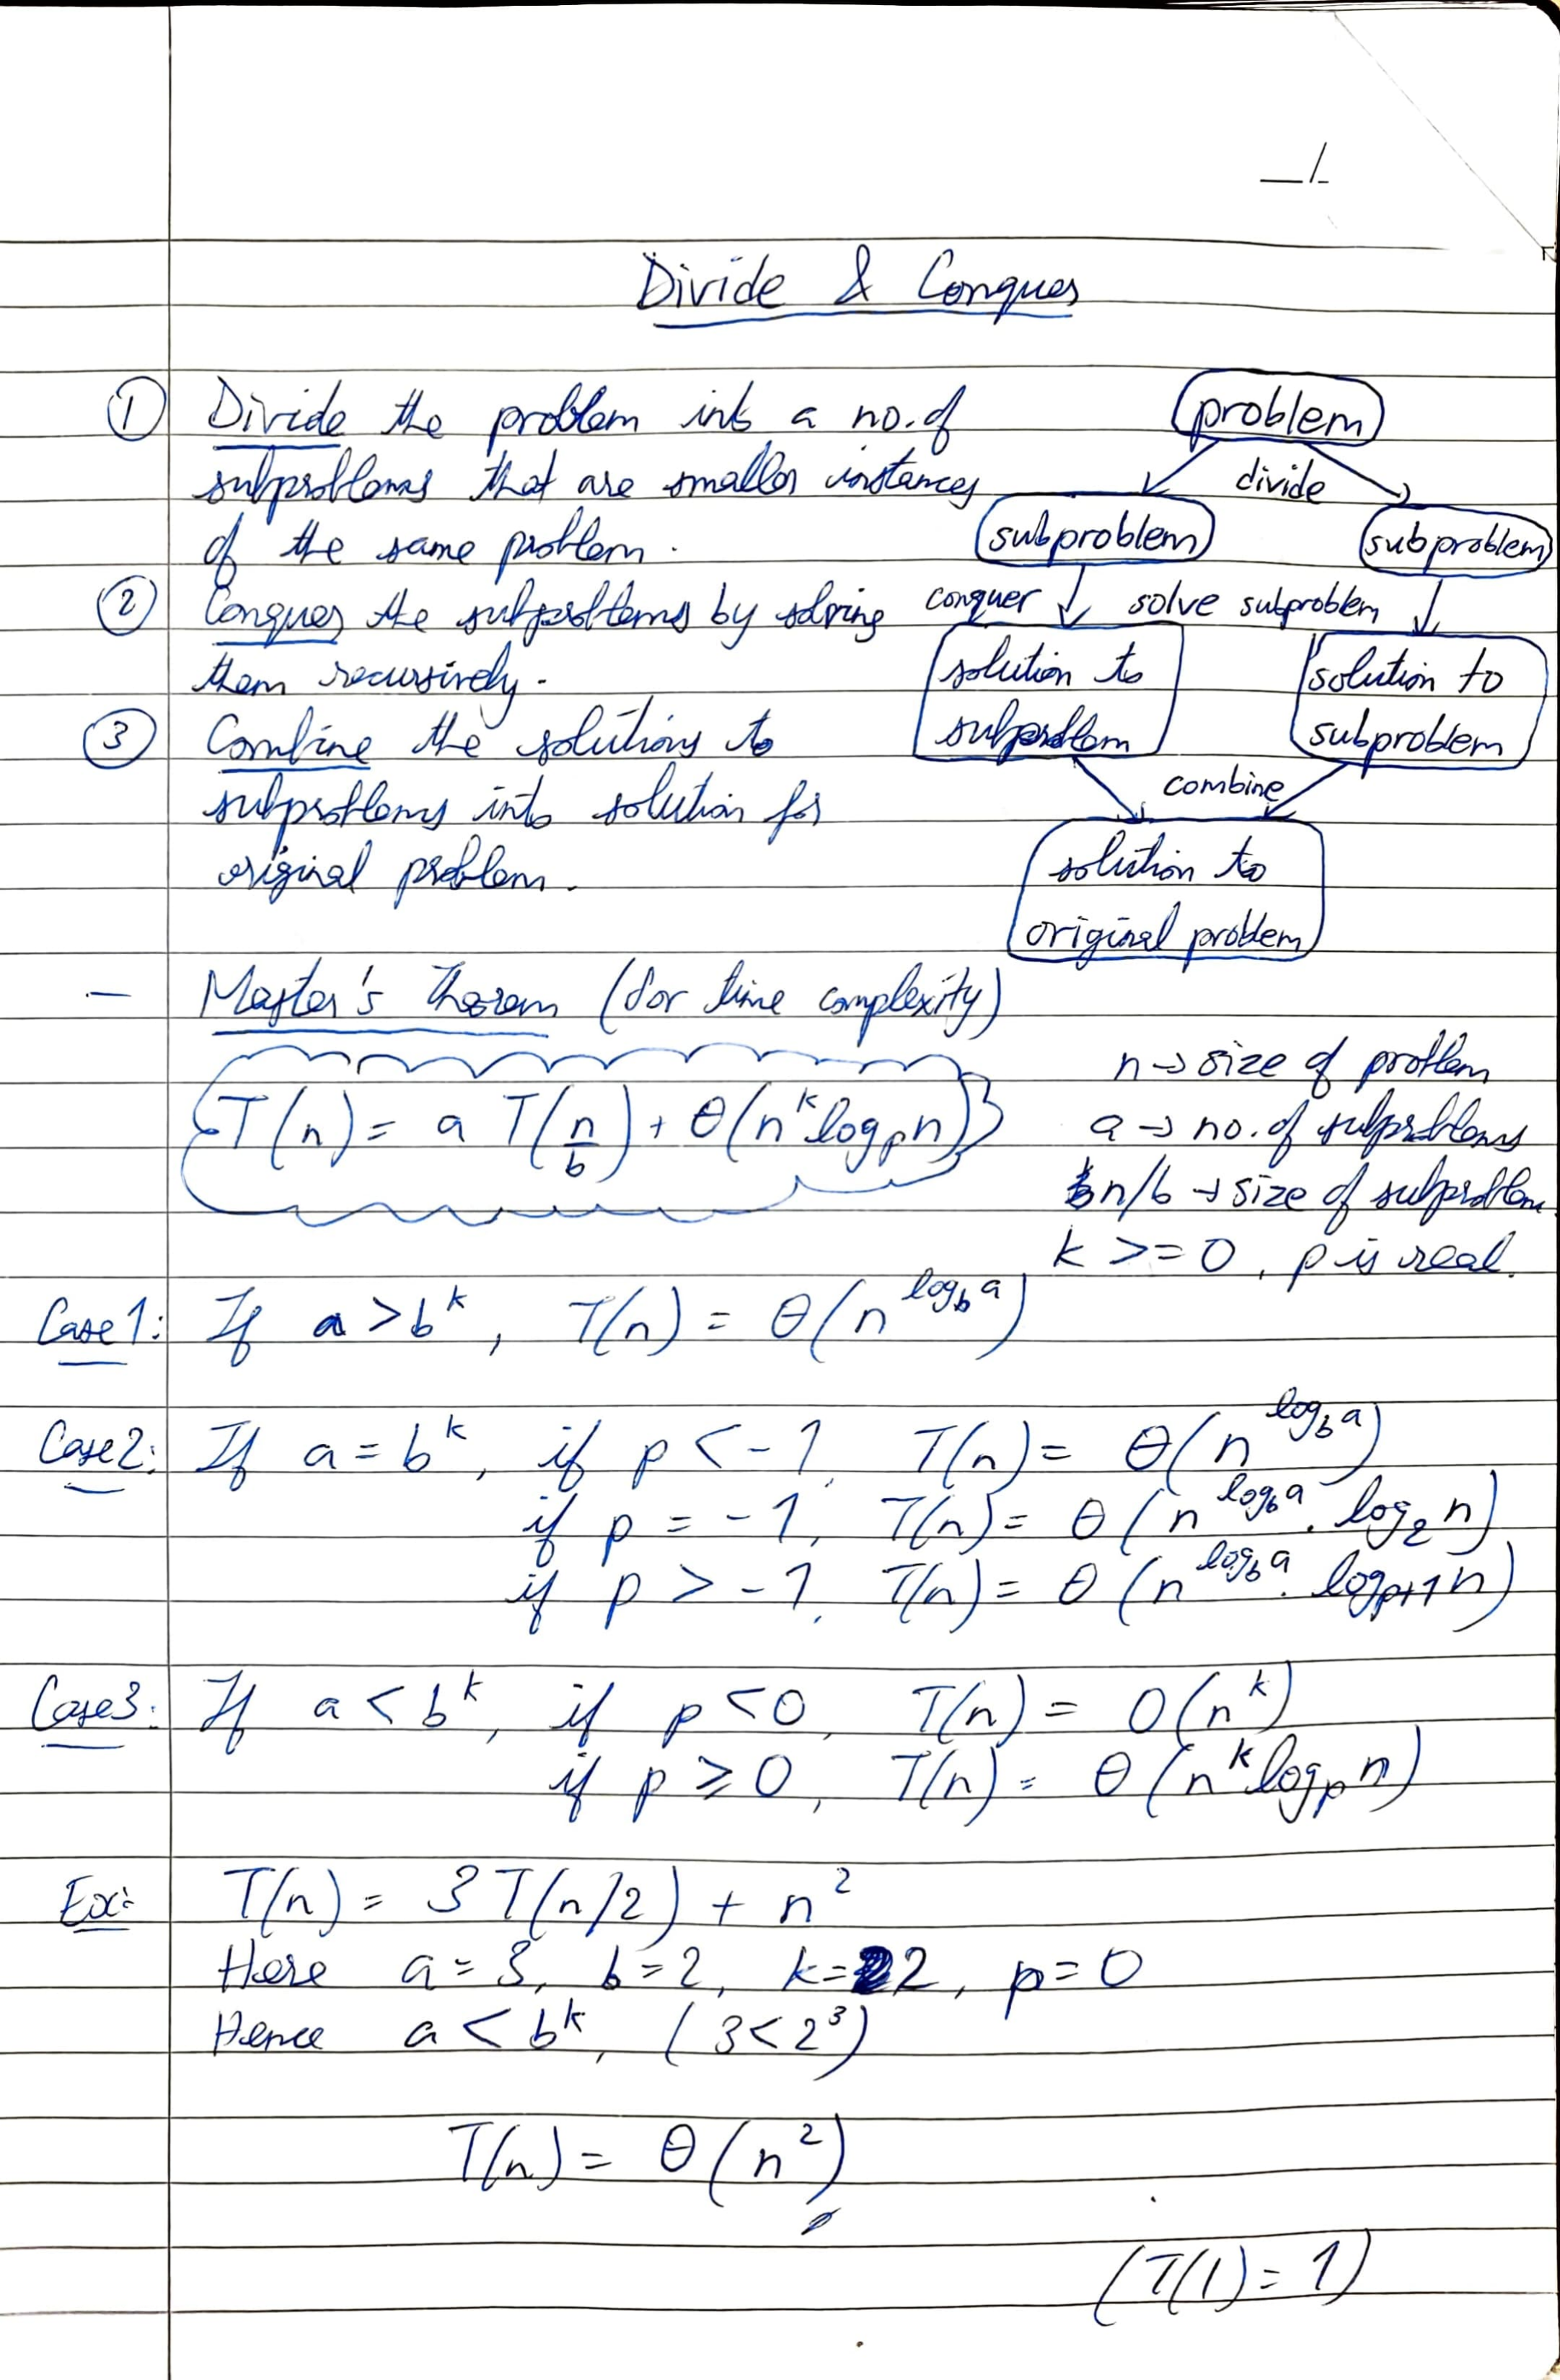 Divide & Conquer
① Divide the problem into a no. of
subproblems that are smaller instances
of the same problem.
② Conquer the subproblems by solving
them recursively.
③ Combine the solutions to
subproblems into solution for
original problem.
problem
divide
subproblem subproblem
conquer solve subproblem
solution to
subproblem
solution to
subproblem
combine
solution to
original problem
— Master's Theorem (for time complexity)
T(n) = a T(n/b) + θ(n^k log_p n)
n → size of problem
a → no. of subproblems
n/b → size of subproblem
k >= 0, p is real.
Case 1: If a > b^k, T(n) = θ(n^{log_b a})
Case 2: If a = b^k, if p < -1, T(n) = θ(n^{log_b a})
if p = -1, T(n) = θ(n^{log_b a} . log_2 n)
if p > -1, T(n) = θ(n^{log_b a} . log_{p+1} n)
Case 3: If a < b^k, if p < 0, T(n) = O(n^k)
if p ≥ 0, T(n) = θ(n^k log_p n)
Ex:- T(n) = 3T(n/2) + n^2
Here a = 3, b = 2, k = 2, p = 0
Hence a < b^k, (3 < 2^3)
T(n) = θ(n^2)
(T(1) = 1)